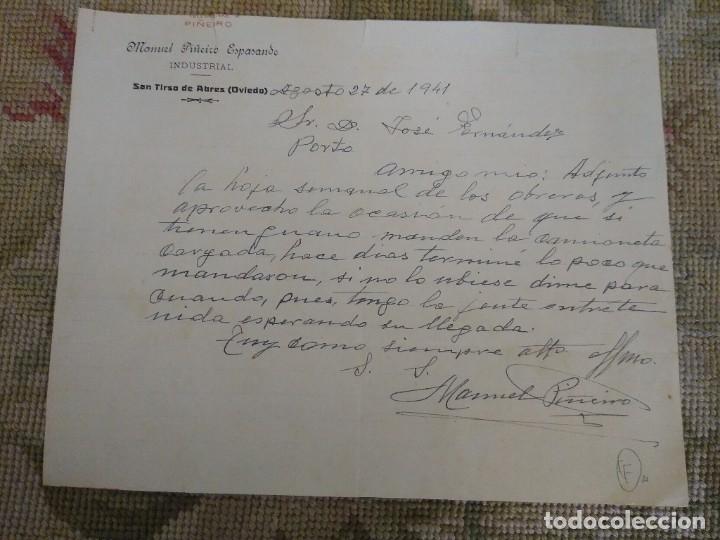 PIÑEIRO
Manuel Piñeiro Esparando
INDUSTRIAL
San Tirso de Abres (Oviedo) Agosto 27 de 1941
Sr. D. José Fernández
Porto
Amigo mio: Adjunto
la hoja semanal de los obreros, y
aprovecho la ocasión de que si
tienen guano manden la camioneta
cargada, hace dias termine lo poco que
mandaron, si no lo ubiese dime para
cuando, pues, tengo la jente entrete
nida esperando su llegada.
Tuy como siempre atto. affmo.
S. S.
Manuel Piñeiro
todocoleccion.net